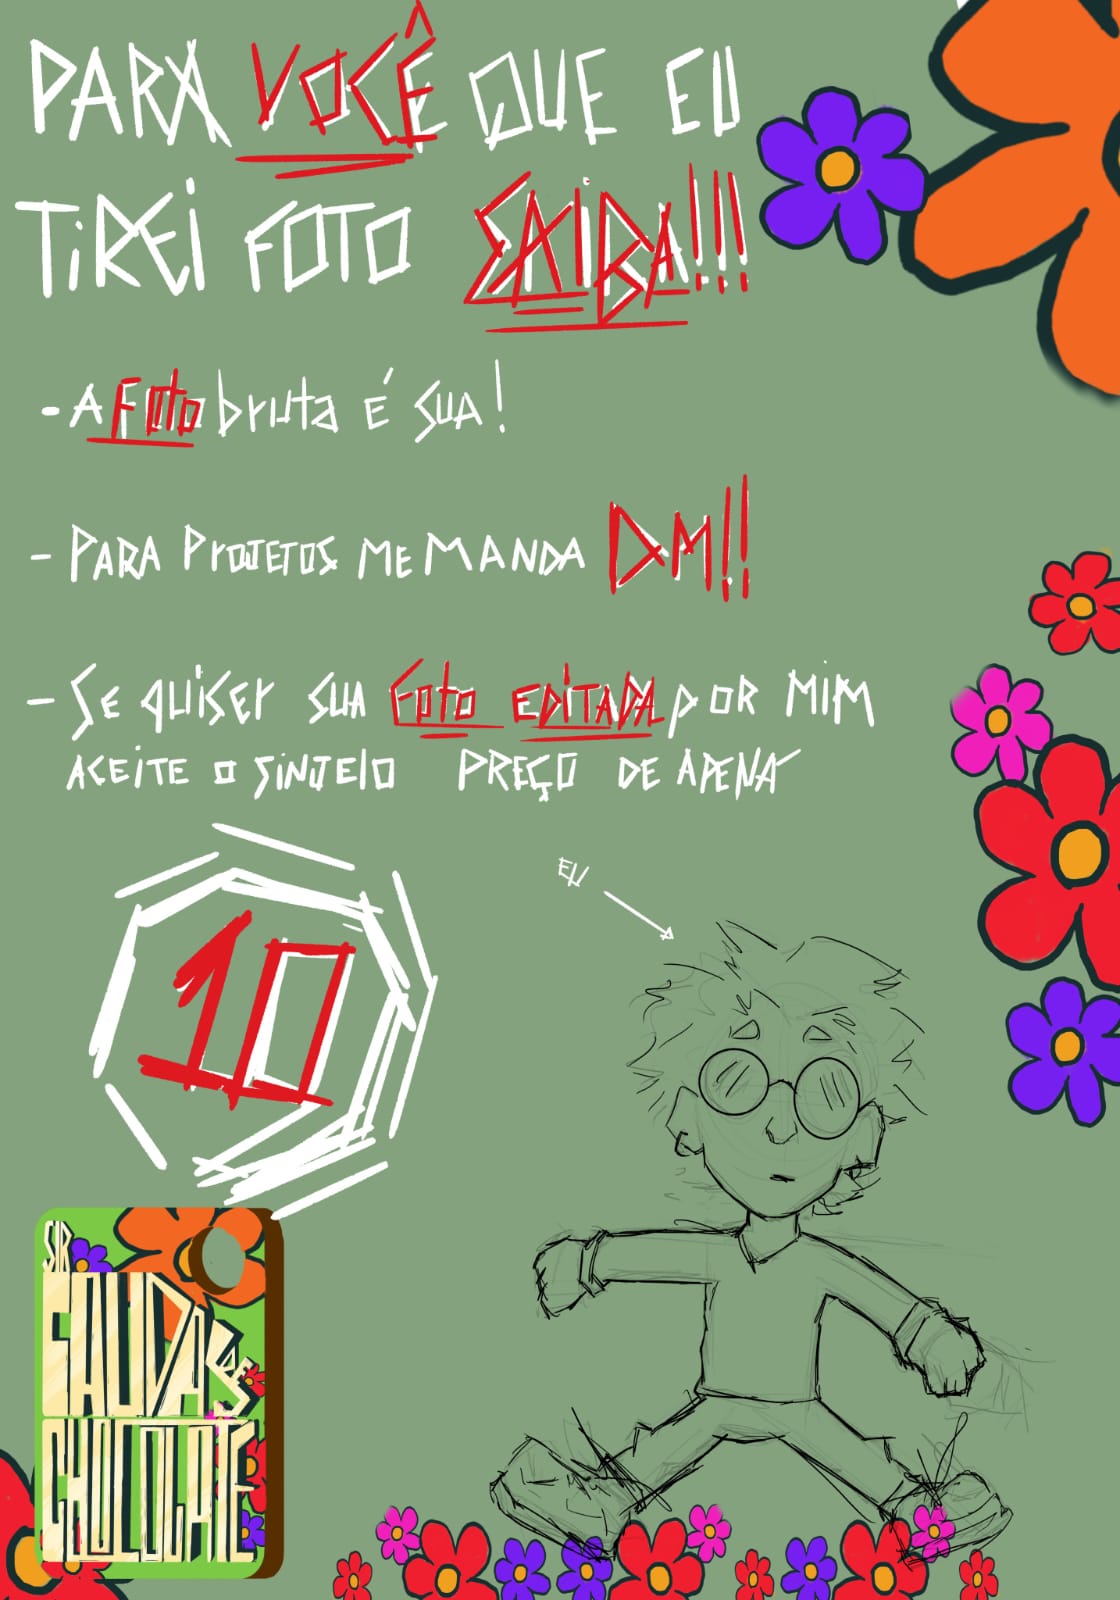 PARA VOCÊ QUE EU
TIREI FOTO SAIBA!!!
- A Foto bruta É SUA!
- PARA PROJETOS ME MANDA DM!!
- SE quiser SUA Foto EDITADA POR MIM
ACEITE O SINJELO PREÇO DE APENA
10
EU
SIR
SAUDADES
CHOCOLATE